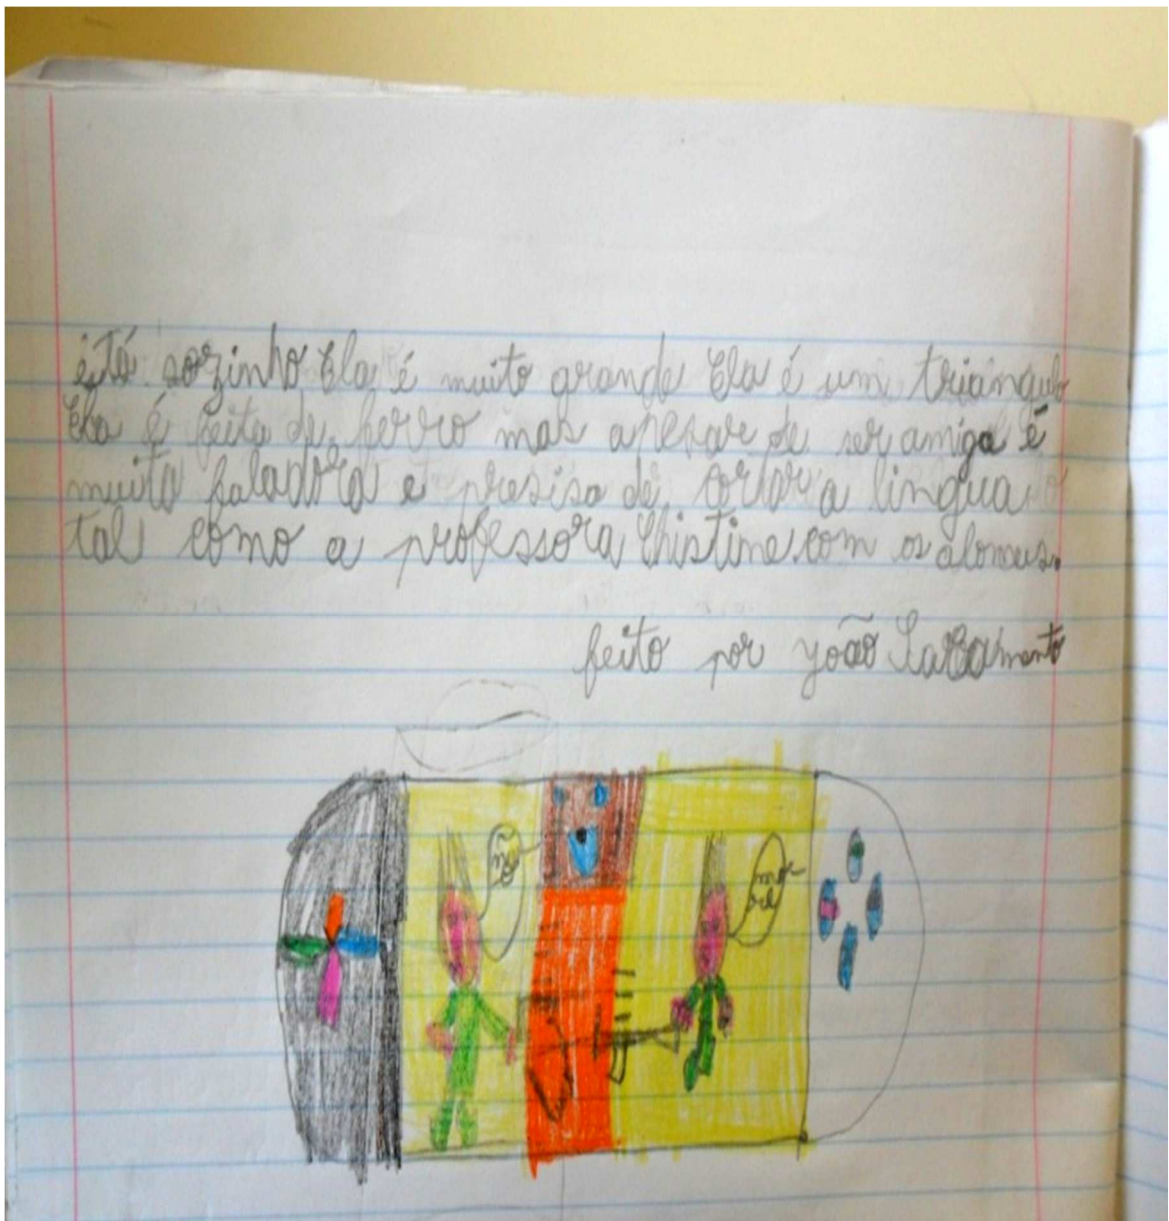 está sozinho Ela é muito grande Ela é um triangulo
Ela é feita de ferro mas apesar de ser amiga é
muita faladora e presisa de cortar a lingua
tal como a professora Christine com os alomus.
feito por João
não